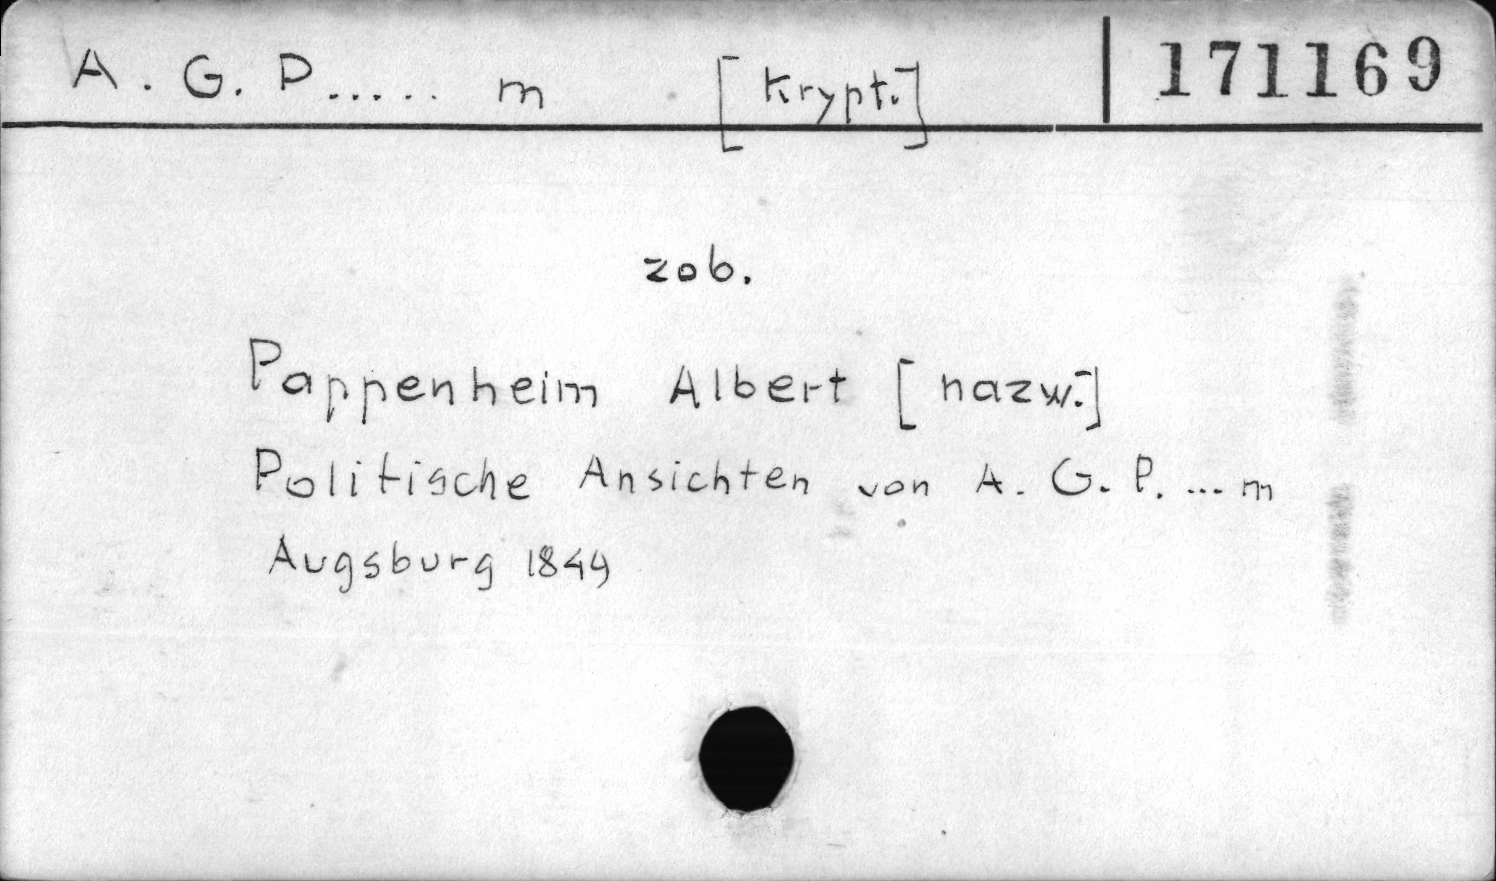 A. G. P..... m [Krypt.] 171169
zob.
Pappenheim Albert [nazw.]
Politische Ansichten von A. G. P. ... m
Augsburg 1849